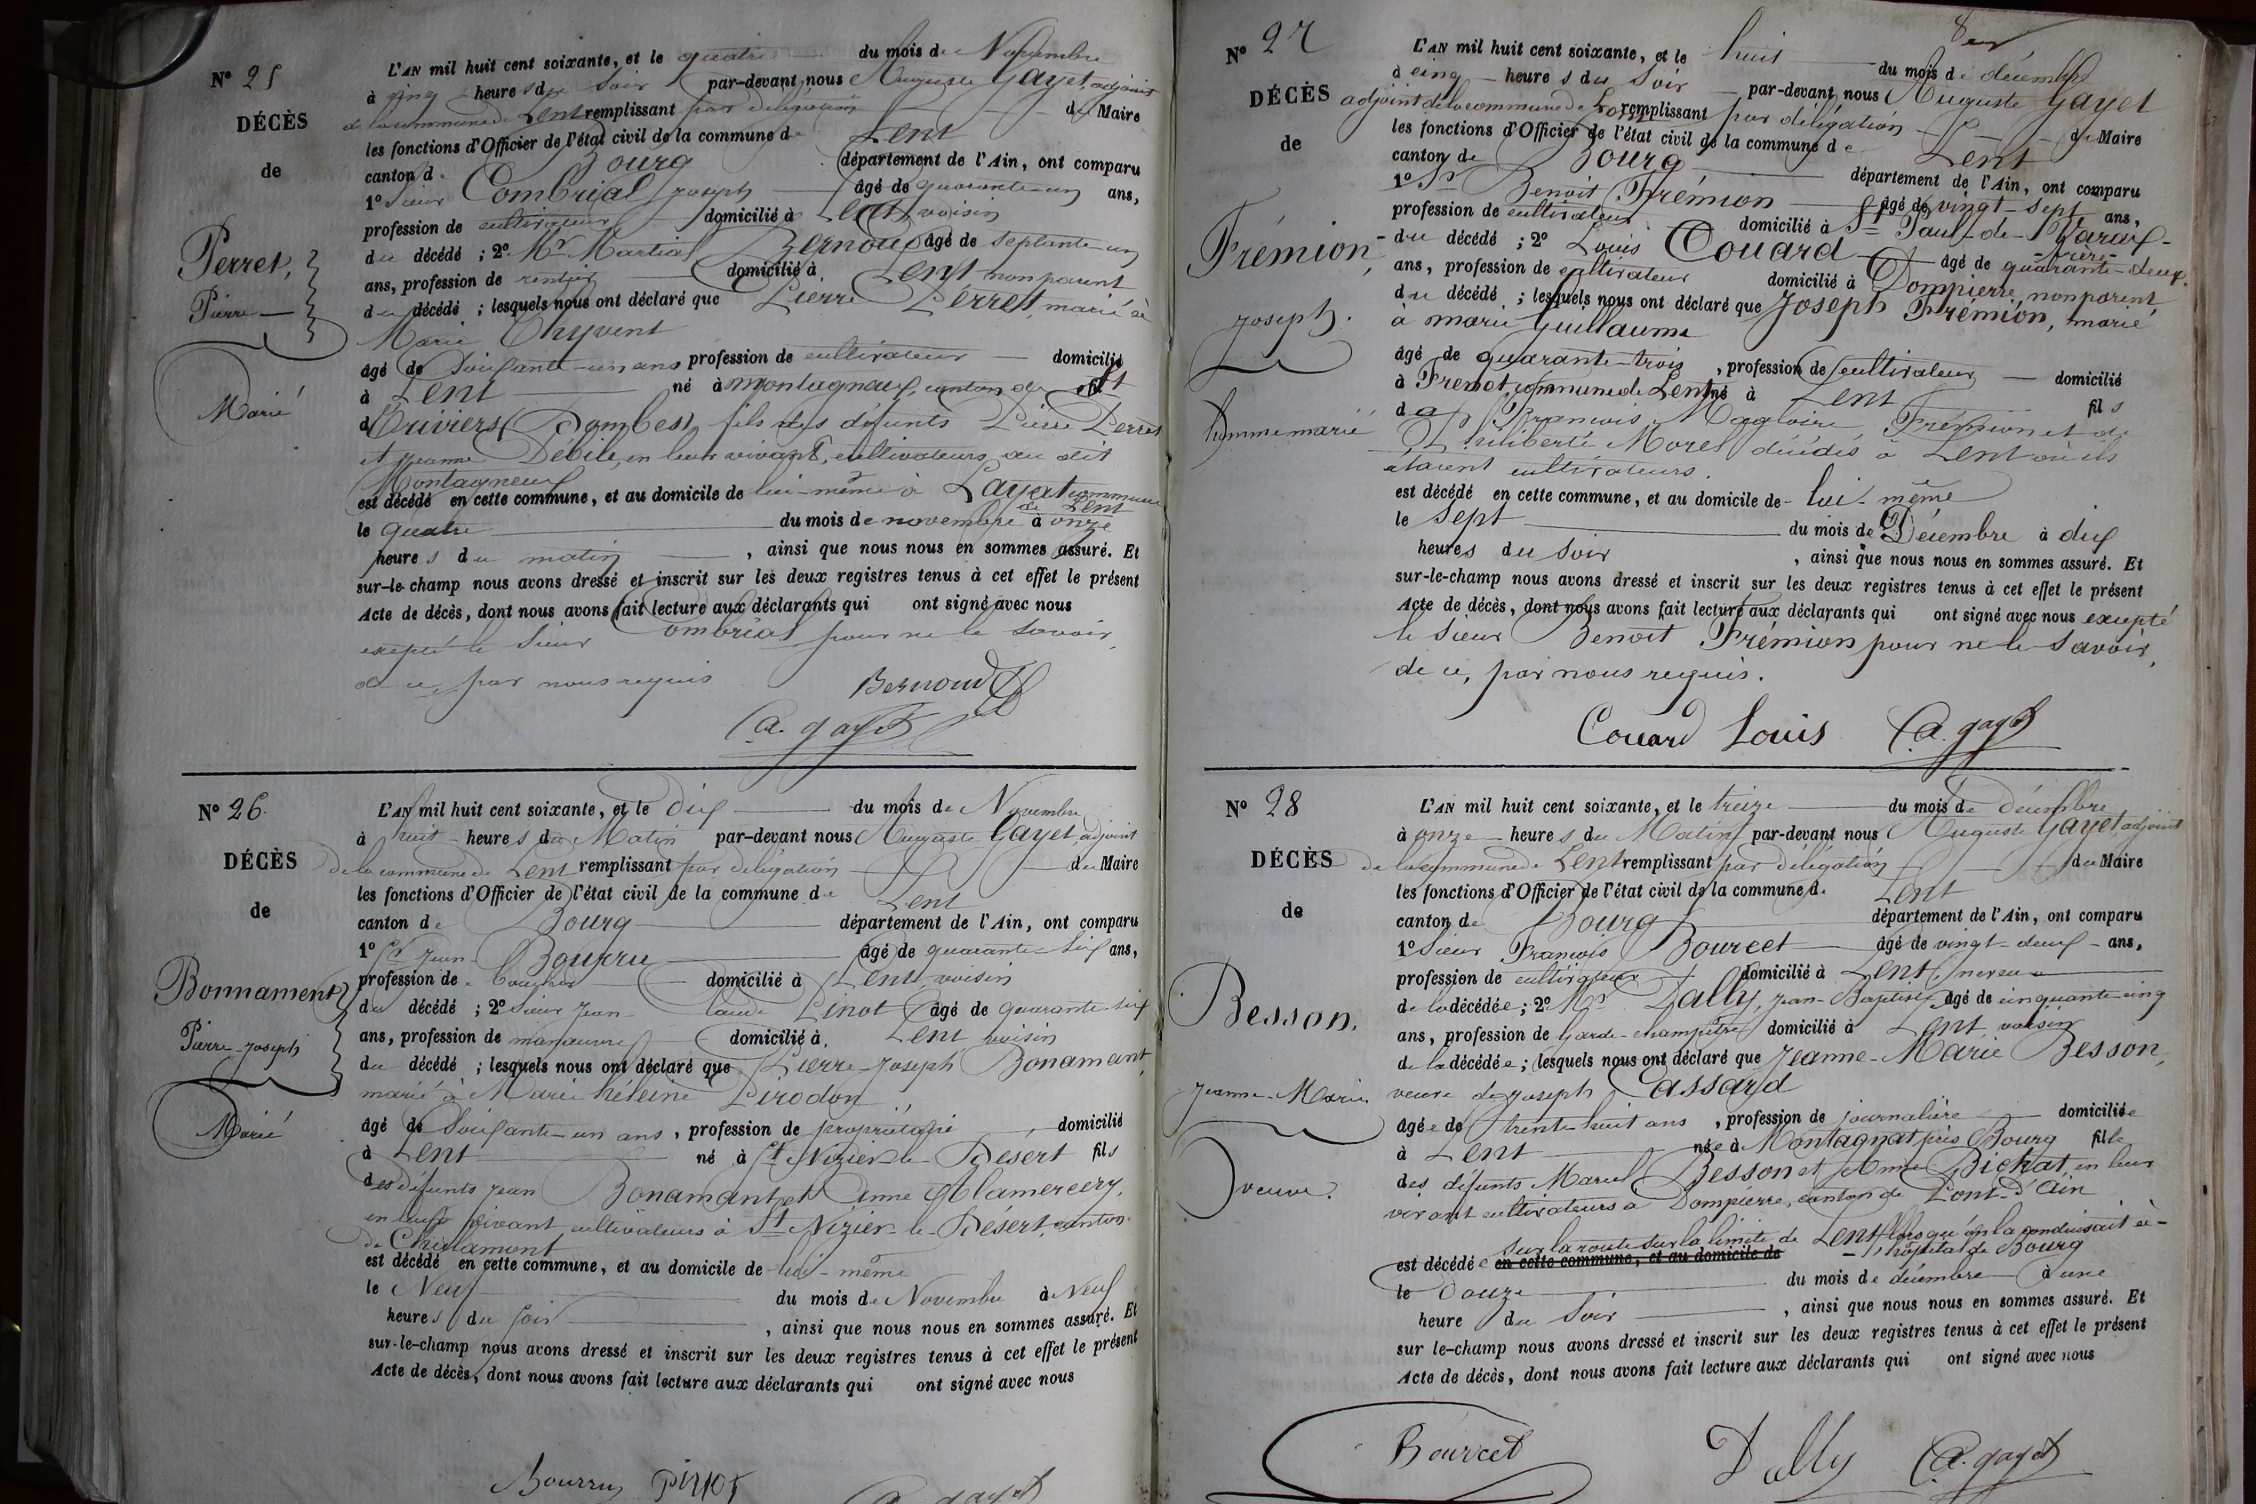 N° 25
DÉCÈS
de
Perret,
Pierre
Marié
L'AN mil huit cent soixante, et le quatre du mois de Novembre
à cinq heures du soir par-devant nous Auguste Gayet, adjoint
de la commune de Lent remplissant par délégation du Maire
les fonctions d'Officier de l'état civil de la commune de Lent
canton de Bourg département de l'Ain, ont comparu
1° Sieur Combrial Joseph âgé de quarante-un ans,
profession de cultivateur domicilié à Lent, voisin
du décédé ; 2° Mr Martial Bernoud âgé de septante-un
ans, profession de rentier domicilié à Lent non parent
du décédé ; lesquels nous ont déclaré que Pierre Perret, marié à
Marie Chyvent
âgé de Soixante-un ans profession de cultivateur domicilié
à Lent né à Montagneux, canton de St
Triviers (Dombes), fils des défunts Pierre Perret
et Jeanne Débile, en leur vivant, cultivateurs au dit
Montagneux
est décédé en cette commune, et au domicile de lui-même à Layat commune
de Lent
le quatre du mois de novembre à onze
heures du matin , ainsi que nous nous en sommes assuré. Et
sur-le-champ nous avons dressé et inscrit sur les deux registres tenus à cet effet le présent
Acte de décès, dont nous avons fait lecture aux déclarants qui ont signé avec nous
excepté le Sieur Combrial pour ne le savoir,
de ce, par nous requis
Bernoud
A. gayet
N° 26.
DÉCÈS
de
Bonnament
Pierre-Joseph
Marié
L'AN mil huit cent soixante, et le dix du mois de Novembre
à huit heures du Matin par-devant nous Auguste Gayet, adjoint
de la commune de Lent remplissant par délégation du Maire
les fonctions d'Officier de l'état civil de la commune de Lent
canton de Bourg département de l'Ain, ont comparu
1° Sr Jean Bourru âgé de quarante-six ans,
profession de boucher domicilié à Lent, voisin
du décédé ; 2° sieur Jean-Claude Pinot âgé de quarante-six
ans, profession de manœuvre domicilié à Lent voisin
du décédé ; lesquels nous ont déclaré que Pierre-Joseph Bonamant,
marié à Marie héleine Pirodon
âgé de Soixante-un ans , profession de propriétaire domicilié
à Lent né à St Nizier-le-Désert fils
des défunts Jean Bonamant et Anne Alamercery,
en leur vivant cultivateurs à St Nizier-le-Désert, canton
de Chalamont
est décédé en cette commune, et au domicile de lui-même
le Neuf du mois de Novembre à Neuf
heures du soir , ainsi que nous nous en sommes assuré. Et
sur-le-champ nous avons dressé et inscrit sur les deux registres tenus à cet effet le présent
Acte de décès, dont nous avons fait lecture aux déclarants qui ont signé avec nous
Bourru Pinot A. gayet
N° 27
DÉCÈS
de
Frémion,
Joseph.
homme marié
L'AN mil huit cent soixante, et le huit du mois de décembre
à cinq heures du Soir par-devant nous Auguste Gayet
adjoint de la commune de Lent remplissant par délégation du Maire
les fonctions d'Officier de l'état civil de la commune de Lent
canton de Bourg département de l'Ain, ont comparu
1° Sr Benoit Frémion âgé de vingt-sept ans,
profession de cultivateur domicilié à St Paul-de-Varax-
frère-
du décédé ; 2° Louis Couard âgé de quarante-deux
ans, profession de cultivateur domicilié à Dompierre, non parent
du décédé ; lesquels nous ont déclaré que Joseph Frémion, marié
à marie Guillaume
âgé de quarante-trois , profession de cultivateur domicilié
à Fremot, commune de Lent né à Lent fils
de François Magloire Frémion et de
Philiberte Morel décédés à Lent où ils
étaient cultivateurs.
est décédé en cette commune, et au domicile de lui-même
le Sept du mois de Décembre à dix
heures du Soir , ainsi que nous nous en sommes assuré. Et
sur-le-champ nous avons dressé et inscrit sur les deux registres tenus à cet effet le présent
Acte de décès, dont nous avons fait lecture aux déclarants qui ont signé avec nous excepté
le Sieur Benoit Frémion pour ne le savoir,
de ce, par nous requis.
Couard Louis A. gayet
N° 28
DÉCÈS
de
Besson.
Jeanne-Marie
veuve.
L'AN mil huit cent soixante, et le treize du mois de décembre
à onze heures du Matin par-devant nous Auguste Gayet adjoint
de la commune de Lent remplissant par délégation du Maire
les fonctions d'Officier de l'état civil de la commune de Lent
canton de Bourg département de l'Ain, ont comparu
1° Sieur François Bourcet âgé de vingt-deux ans,
profession de cultivateur domicilié à Lent, neveu
de la décédée ; 2° Mr Dally, Jean-Baptiste âgé de cinquante-cinq
ans, profession de Garde-champêtre domicilié à Lent, voisin
de la décédée ; lesquels nous ont déclaré que Jeanne-Marie Besson,
veuve de Joseph Cassard
âgée de trente-huit ans , profession de journalière domiciliée
à Lent née à Montagnat près Bourg fille
des défunts Marcel Besson et Anne Bichat, en leur
vivant cultivateurs à Dompierre, canton de Pont-d'Ain
sur la route sur la limite de Lent, lorsqu'on la conduisait à
l'hôpital de Bourg
est décédée en cette commune, et au domicile de
le Douze du mois de décembre à une
heure du Soir , ainsi que nous nous en sommes assuré. Et
sur le-champ nous avons dressé et inscrit sur les deux registres tenus à cet effet le présent
Acte de décès, dont nous avons fait lecture aux déclarants qui ont signé avec nous
Bourcet Dally A. gayet